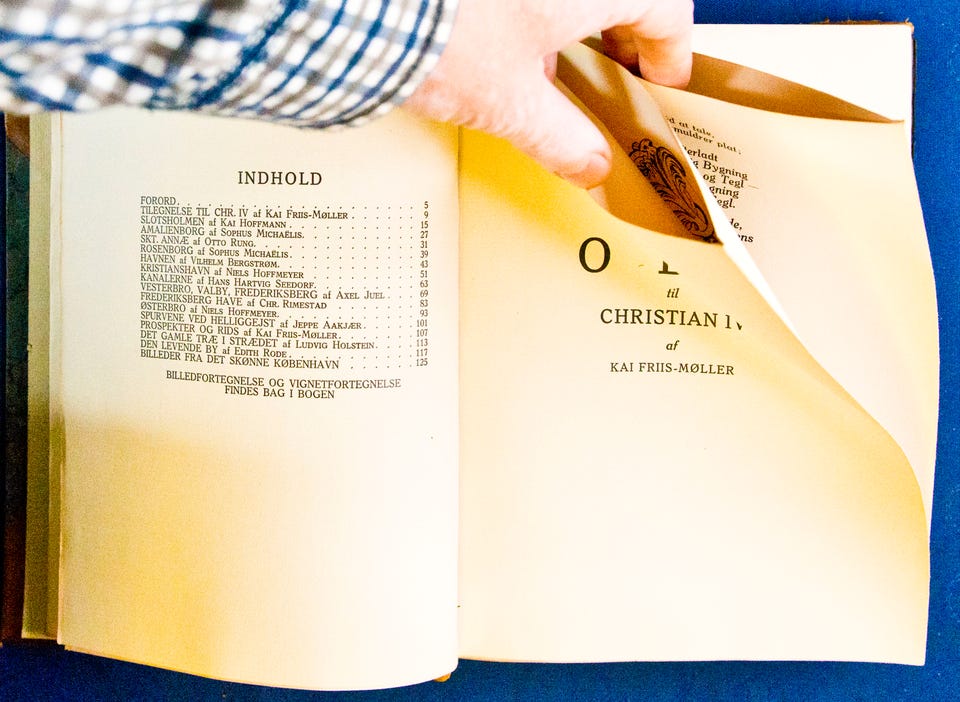 INDHOLD
FORORD. 5
TILEGNELSE TIL CHR. IV af KAI FRIIS-MØLLER . 9
SLOTSHOLMEN af KAI HOFFMANN . 15
AMALIENBORG af SOPHUS MICHAËLIS. 27
SKT. ANNÆ af OTTO RUNG. 31
ROSENBORG af SOPHUS MICHAËLIS. 39
HAVNEN af VILHELM BERGSTRØM. 43
KRISTIANSHAVN af NIELS HOFFMEYER 51
KANALERNE af HANS HARTVIG SEEDORF. 63
VESTERBRO, VALBY, FREDERIKSBERG af AXEL JUEL . 69
FREDERIKSBERG HAVE af CHR. RIMESTAD 83
ØSTERBRO af NIELS HOFFMEYER. 93
SPURVENE VED HELLIGGEJST af JEPPE AAKJÆR . 101
PROSPEKTER OG RIDS af KAI FRIIS-MØLLER. 107
DET GAMLE TRÆ I STRÆDET af LUDVIG HOLSTEIN. 113
DEN LEVENDE BY af EDITH RODE. 117
BILLEDER FRA DET SKØNNE KØBENHAVN . 125
BILLEDFORTEGNELSE OG VIGNETFORTEGNELSE
FINDES BAG I BOGEN
O
til
CHRISTIAN IV
af
KAI FRIIS-MØLLER
at tale,
muldrer plat;
Bygning
og Tegl